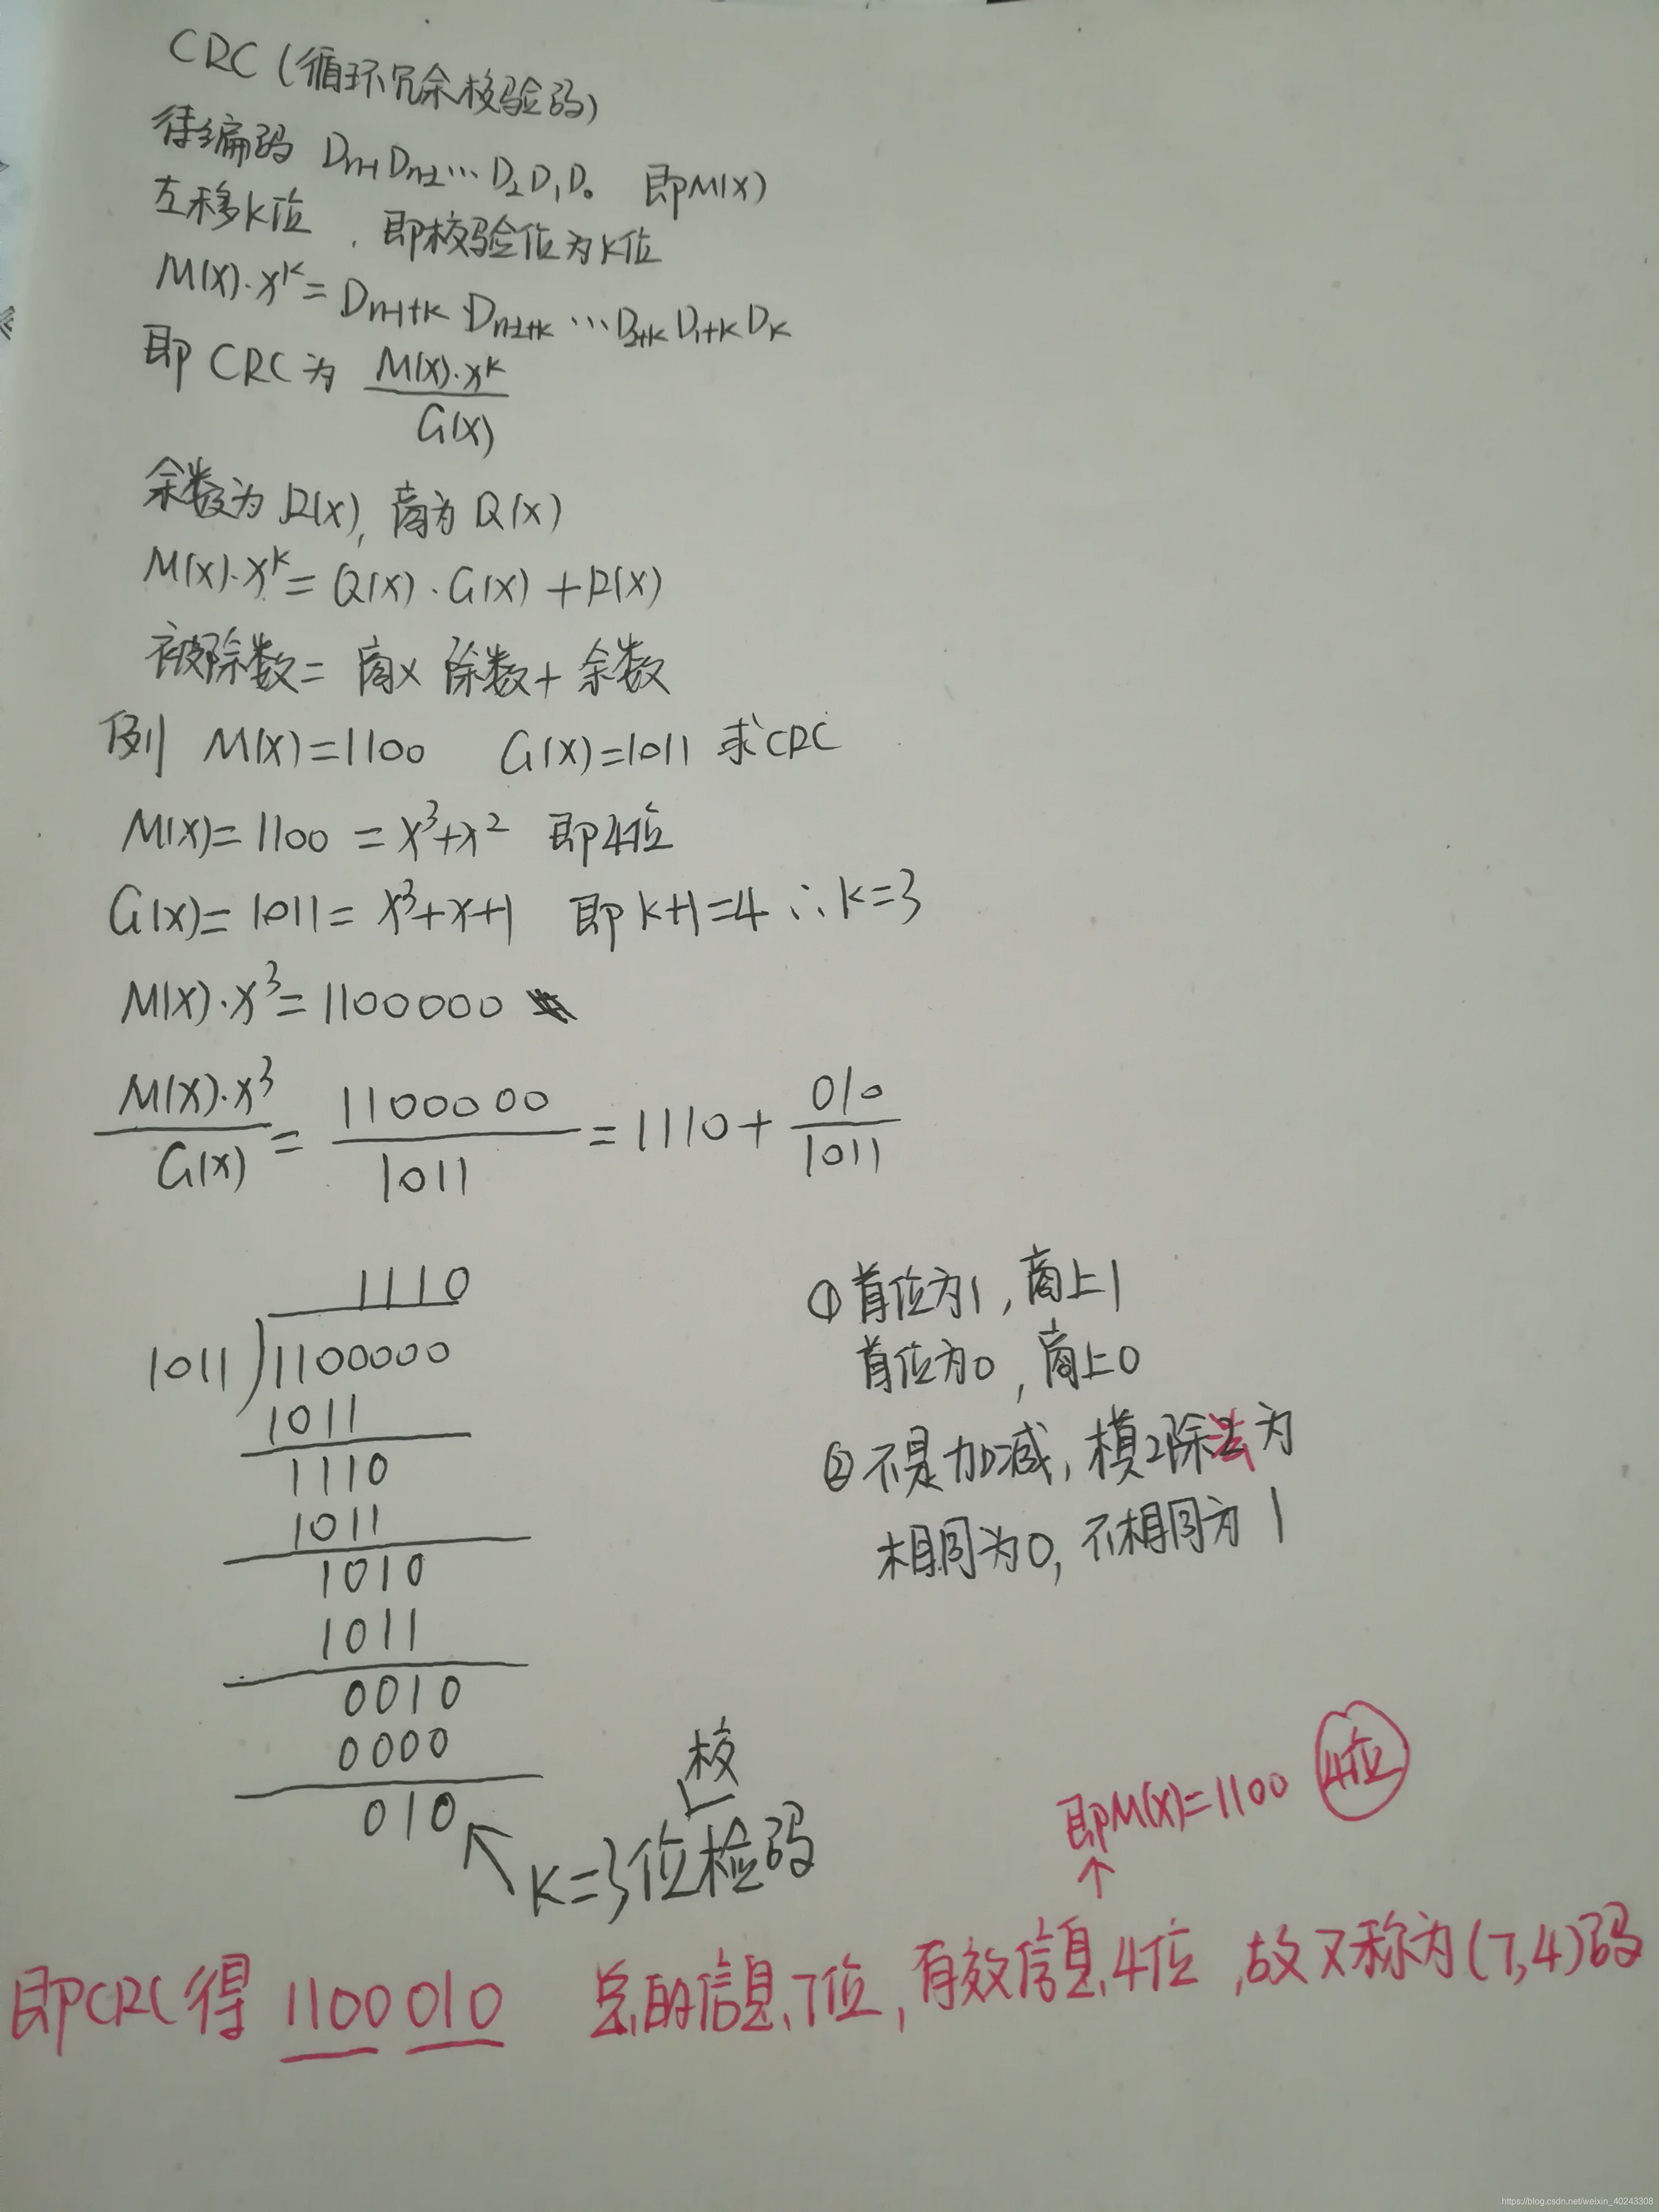 CRC (循环冗余校验码)
待编码 Dn-1 Dn-2 … D2 D1 D0 即M(X)
左移K位 , 即校验位为K位
M(X)·X^K = Dn-1+K Dn-2+K … D2+K D1+K DK
即 CRC 为 M(X)·X^K / G(X)
余数为 R(X), 商为 Q(X)
M(X)·X^K = Q(X)·G(X) + R(X)
被除数 = 商 × 除数 + 余数
例 M(X)=1100 G(X)=1011 求CRC
M(X)=1100 = X³+X² 即4位
G(X)=1011= X³+X+1 即K+1=4 ∴K=3
M(X)·X³=1100000
M(X)·X³ / G(X) = 1100000 / 1011 = 1110 + 010 / 1011
1110
1011 ) 1100000
1011
1110
1011
1010
1011
0010
0000
010
① 首位为1, 商上1
首位为0, 商上0
② 不是加减, 模2除法为
相同为0, 不相同为1
校
K=3位检码
即M(X)=1100 4位
↑
即CRC得 1100010 总的信息7位, 有效信息4位, 故又称为(7,4)码
https://blog.csdn.net/weixin_40243308